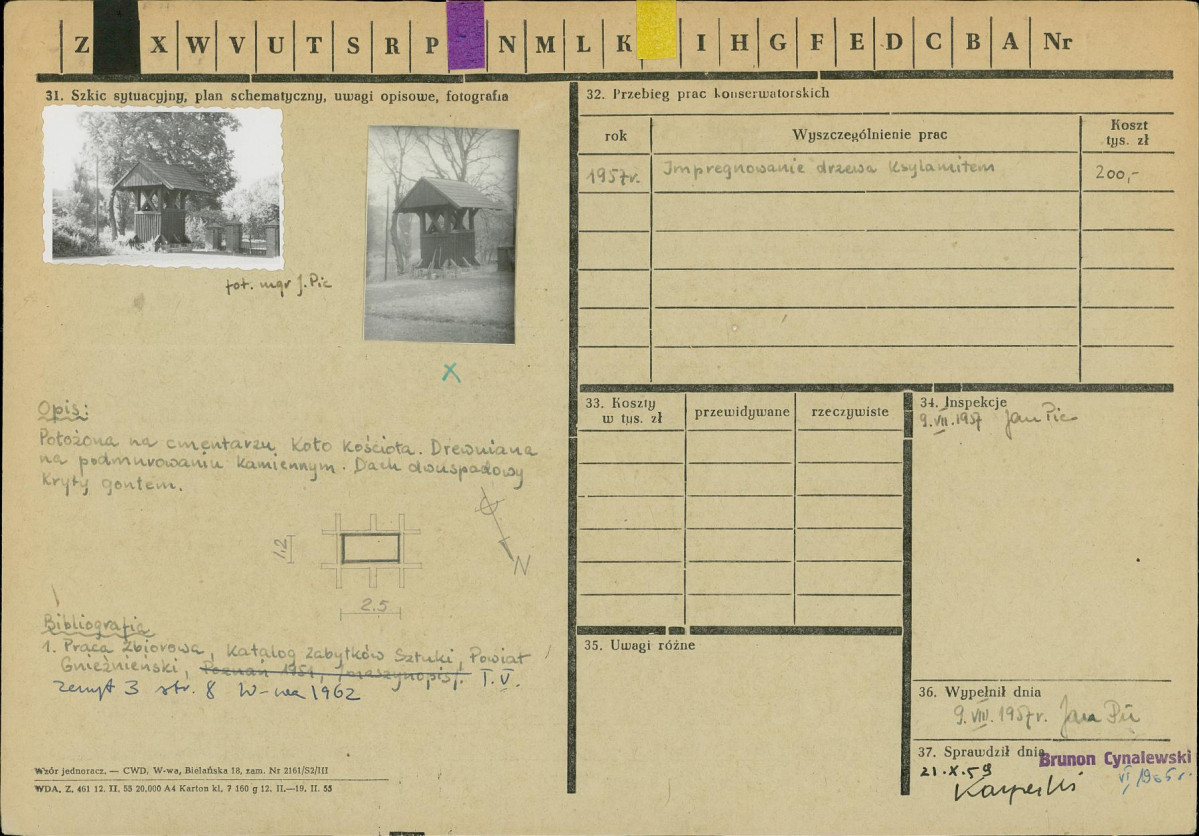 Z X W V U T S R P N M L K I H G F E D C B A Nr
31. Szkic sytuacyjny, plan schematyczny, uwagi opisowe, fotografia
fot. mgr J. Pic
X
Opis:
Położona na cmentarzu koło kościoła. Drewniana
na podmurowaniu kamiennym. Dach dwuspadowy
kryty gontem.
1,2
N
2.5
Bibliografia
1. Praca zbiorowa, Katalog Zabytków Sztuki, Powiat
Gnieźnieński, Poznań 1951, /maszynopis/. T. V.
zeszyt 3 str. 8 W-wa 1962
Wzór jednoracz. — CWD, W-wa, Bielańska 18, zam. Nr 2161/S2/III
WDA. Z. 461 12. II. 55 20.000 A4 Karton kl. 7 160 g 12. II.—19. II. 55
32. Przebieg prac konserwatorskich
rok Wyszczególnienie prac Koszt tys. zł
1957r. Impregnowanie drzewa Ksylamitem 200,-
33. Koszty w tys. zł przewidywane rzeczywiste
34. Inspekcje
9. VII. 1957 Jan Pic
35. Uwagi różne
36. Wypełnił dnia
9. VIII. 1957r. Jan Pic
37. Sprawdził dnia
Brunon Cynalewski
21.X.59
VI 1965 r.